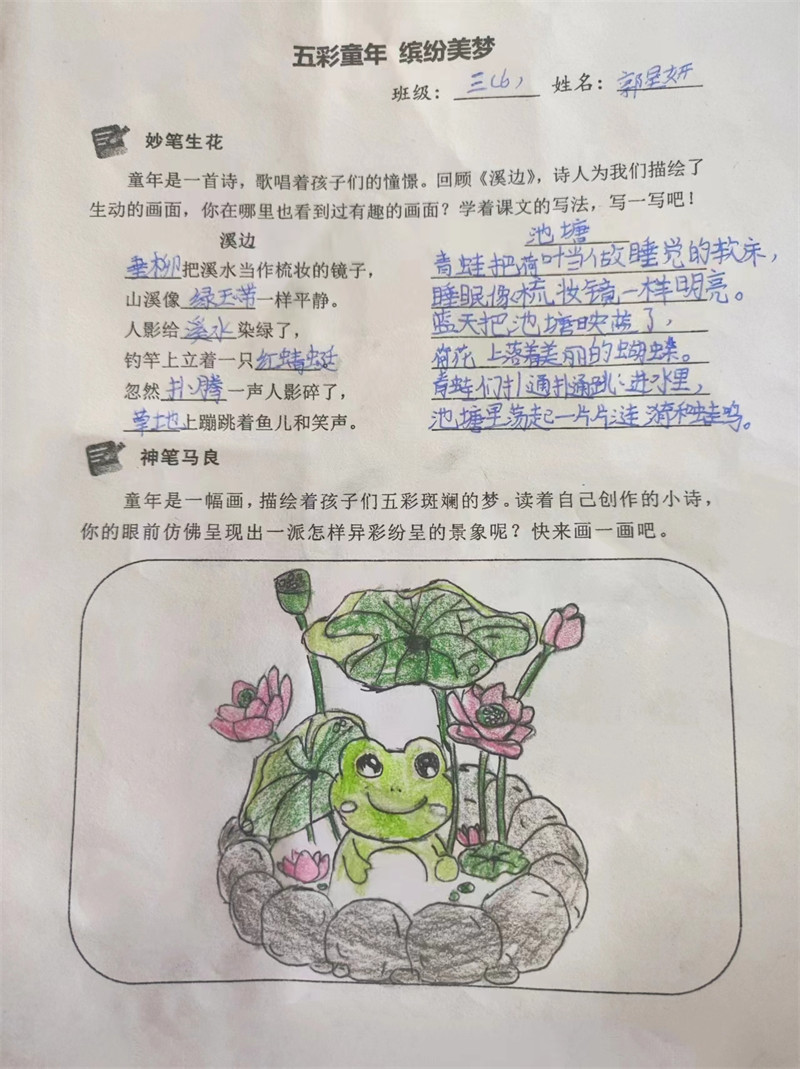 五彩童年 缤纷美梦
班级：三(6) 姓名：郭星妍
妙笔生花
童年是一首诗，歌唱着孩子们的憧憬。回顾《溪边》，诗人为我们描绘了
生动的画面，你在哪里也看到过有趣的画面？学着课文的写法，写一写吧！
溪边
垂柳把溪水当作梳妆的镜子，
山溪像绿玉带一样平静。
人影给溪水染绿了，
钓竿上立着一只红蜻蜓
忽然扑腾一声人影碎了，
草地上蹦跳着鱼儿和笑声。
池塘
青蛙把荷叶当做睡觉的软床，
睡眠像梳妆镜一样明亮。
蓝天把池塘映蓝了，
荷花上落着美丽的蝴蝶。
青蛙们扑通扑通跳进水里，
池塘里荡起一片片涟漪和蛙鸣。
神笔马良
童年是一幅画，描绘着孩子们五彩斑斓的梦。读着自己创作的小诗，
你的眼前仿佛呈现出一派怎样异彩纷呈的景象呢？快来画一画吧。